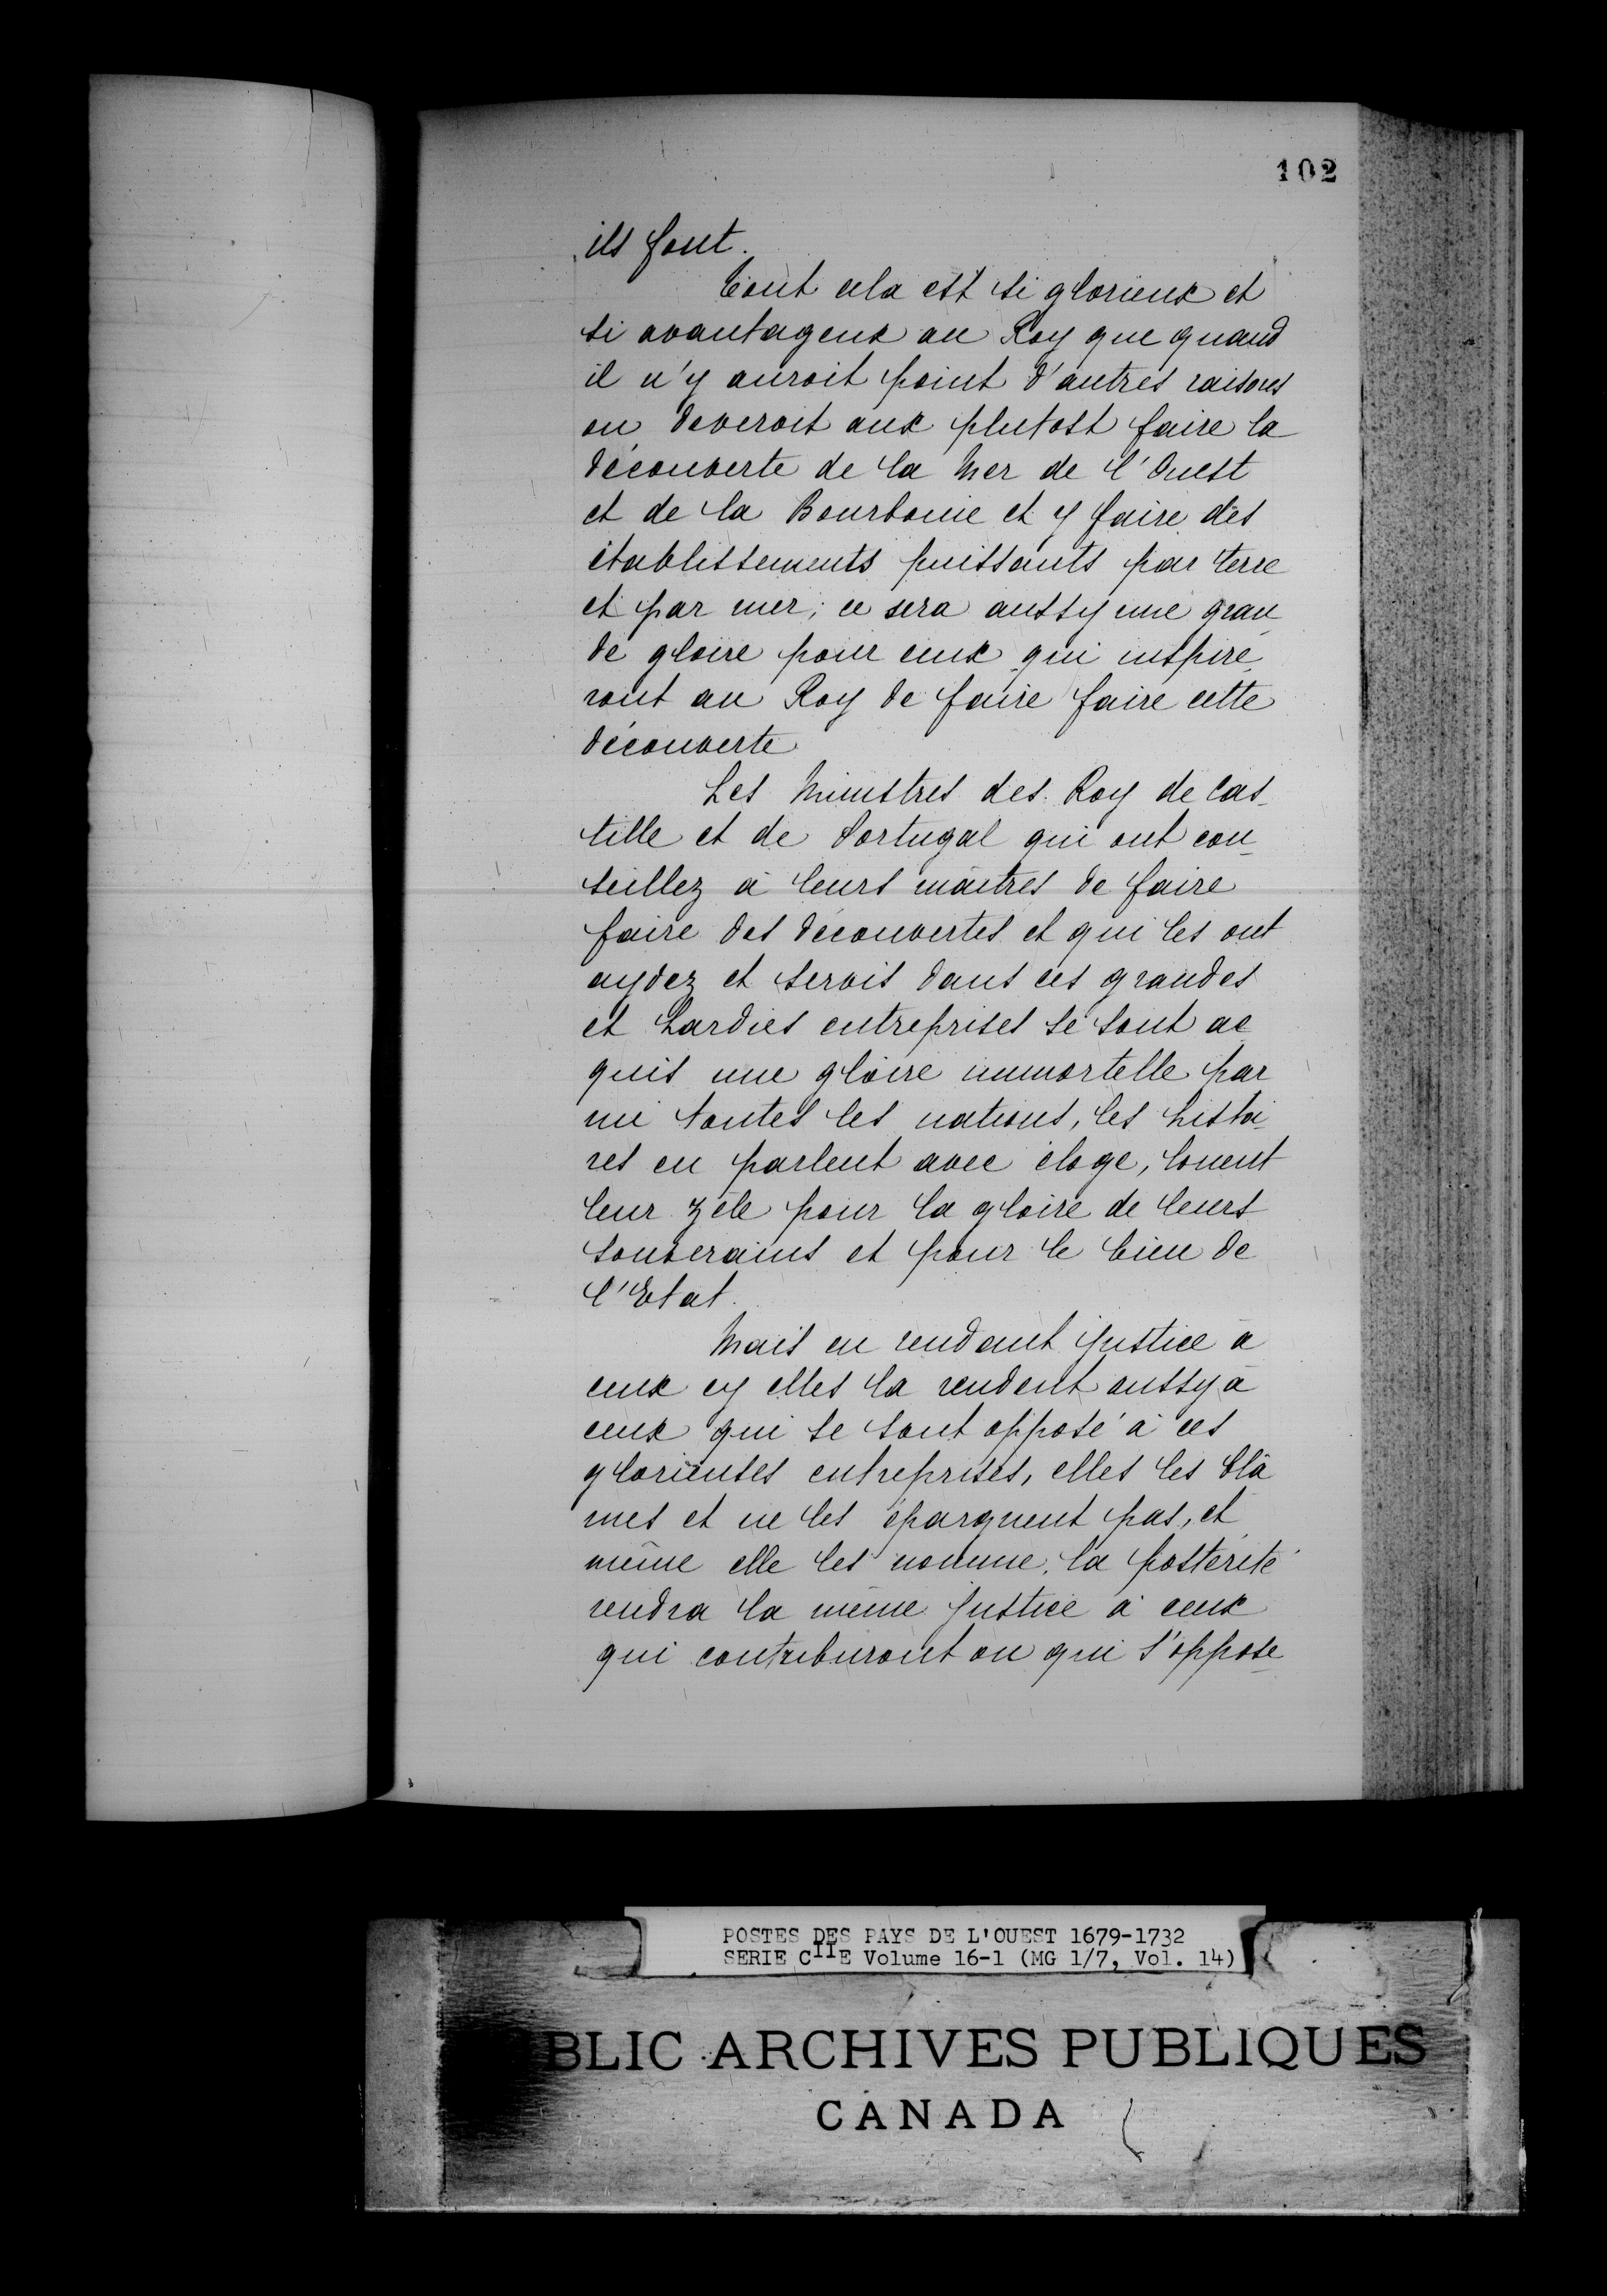 102
ils font.
Tout cela est si glorieux et
si avantageux au Roy que quand
il n'y auroit point d'autres raisons
on deveroit aux plutost faire la
découverte de la Mer de l'Ouest
et de la Bourbonie et y faire des
établissements puissants par terre
et par mer; ce sera aussy une gran
de gloire pour ceux qui inspire
ront au Roy de faire faire cette
découverte
Les Ministres des Roy de Cas-
tille et de Portugal qui ont con-
seillez à leurs maîtres de faire
faire des découvertes et qui les ont
aydez et servis dans ces grandes
et hardies entreprises se sont ac
quis une gloire immortelle par
mi toutes les nations, les histoi-
res en parlent avec éloge, louent
leur zèle pour la gloire de leurs
souverains et pour le bien de
l'Etat.
Mais en rendant justice à
ceux cy elles la rendent aussy à
ceux qui se sont opposé à ces
glorieuses entreprises, elles les blâ
mes et ne les épargnent pas, et
même elle les nomme, la postérité
rendra la même justice à ceux
qui contriburont ou qui s'oppose-
POSTES DES PAYS DE L'OUEST 1679-1732
SERIE CIIE Volume 16-1 (MG 1/7, Vol. 14)
BLIC ARCHIVES PUBLIQUES
CANADA